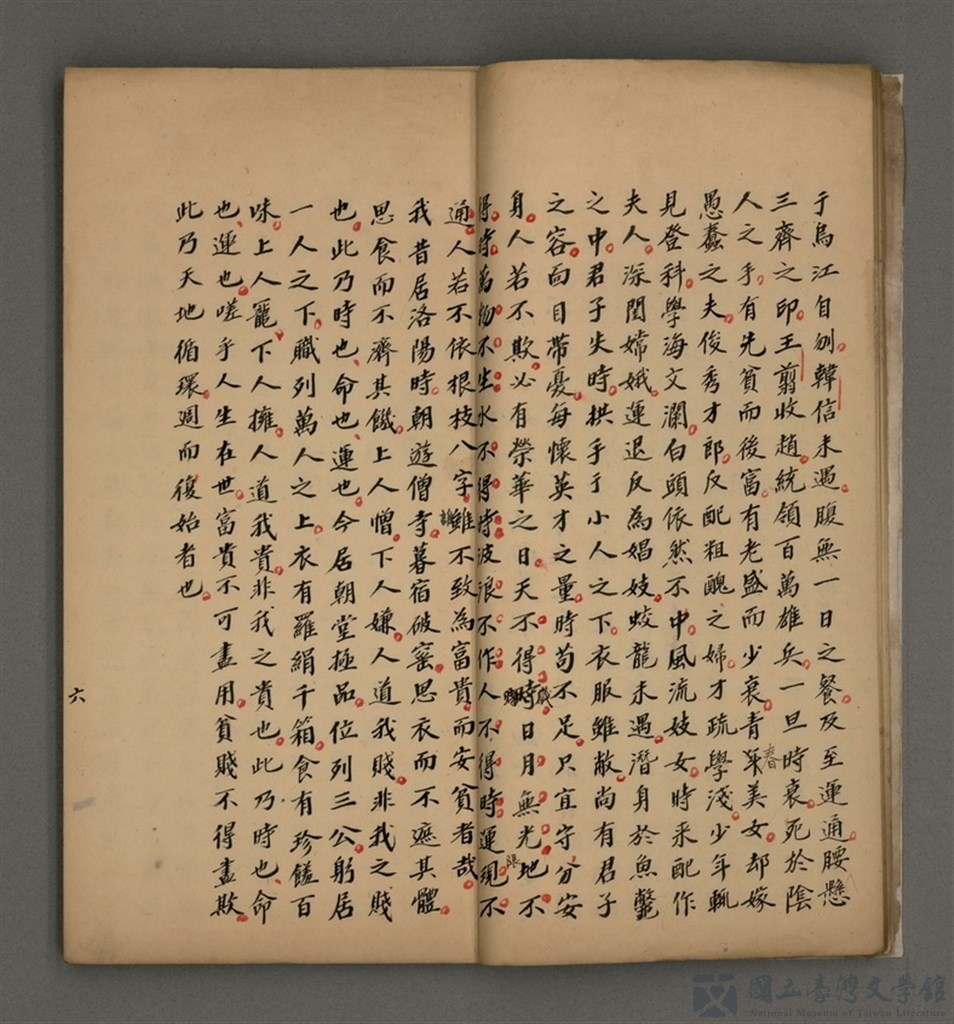 于烏江自刎韓信未遇腹無一日之餐及至運通腰懸
三齊之印王翦收趙統領百萬雄兵一旦時衰死於陰
人之手有先貧而後富有老盛而少衰青春美女却嫁
愚蠢之夫俊秀才郎反配粗醜之婦才疏學淺少年輒
見登科學海文瀾白頭依然不中風流妓女時來配作
夫人深閨嫦娥運退反為娼妓蛟龍未遇潛身於魚鱉
之中君子失時拱手于小人之下衣服雖敝尚有君子
之容面目帶憂每懷英才之量時苟不足只宜守分安
身人若不欺必有榮華之日天不得時日月無光地不
得時萬物不生水不得時波浪不作人不得時運現不
通人若不依根枝八字雖不致為富貴而安貧者哉
我昔居洛陽時朝遊僧寺暮宿破窰思衣而不遮其體
思食而不濟其饑上人憎下人嫌人道我賤非我之賤
也此乃時也命也運也今居朝堂極品位列三公躬居
一人之下職列萬人之上衣有羅絹千箱食有珍饈百
味上人寵下人擁人道我貴非我之貴也此乃時也命
也運也嗟乎人生在世富貴不可盡用貧賤不得盡欺
此乃天地循環週而復始者也
六
國立臺灣文學館
National Museum of Taiwan Literature